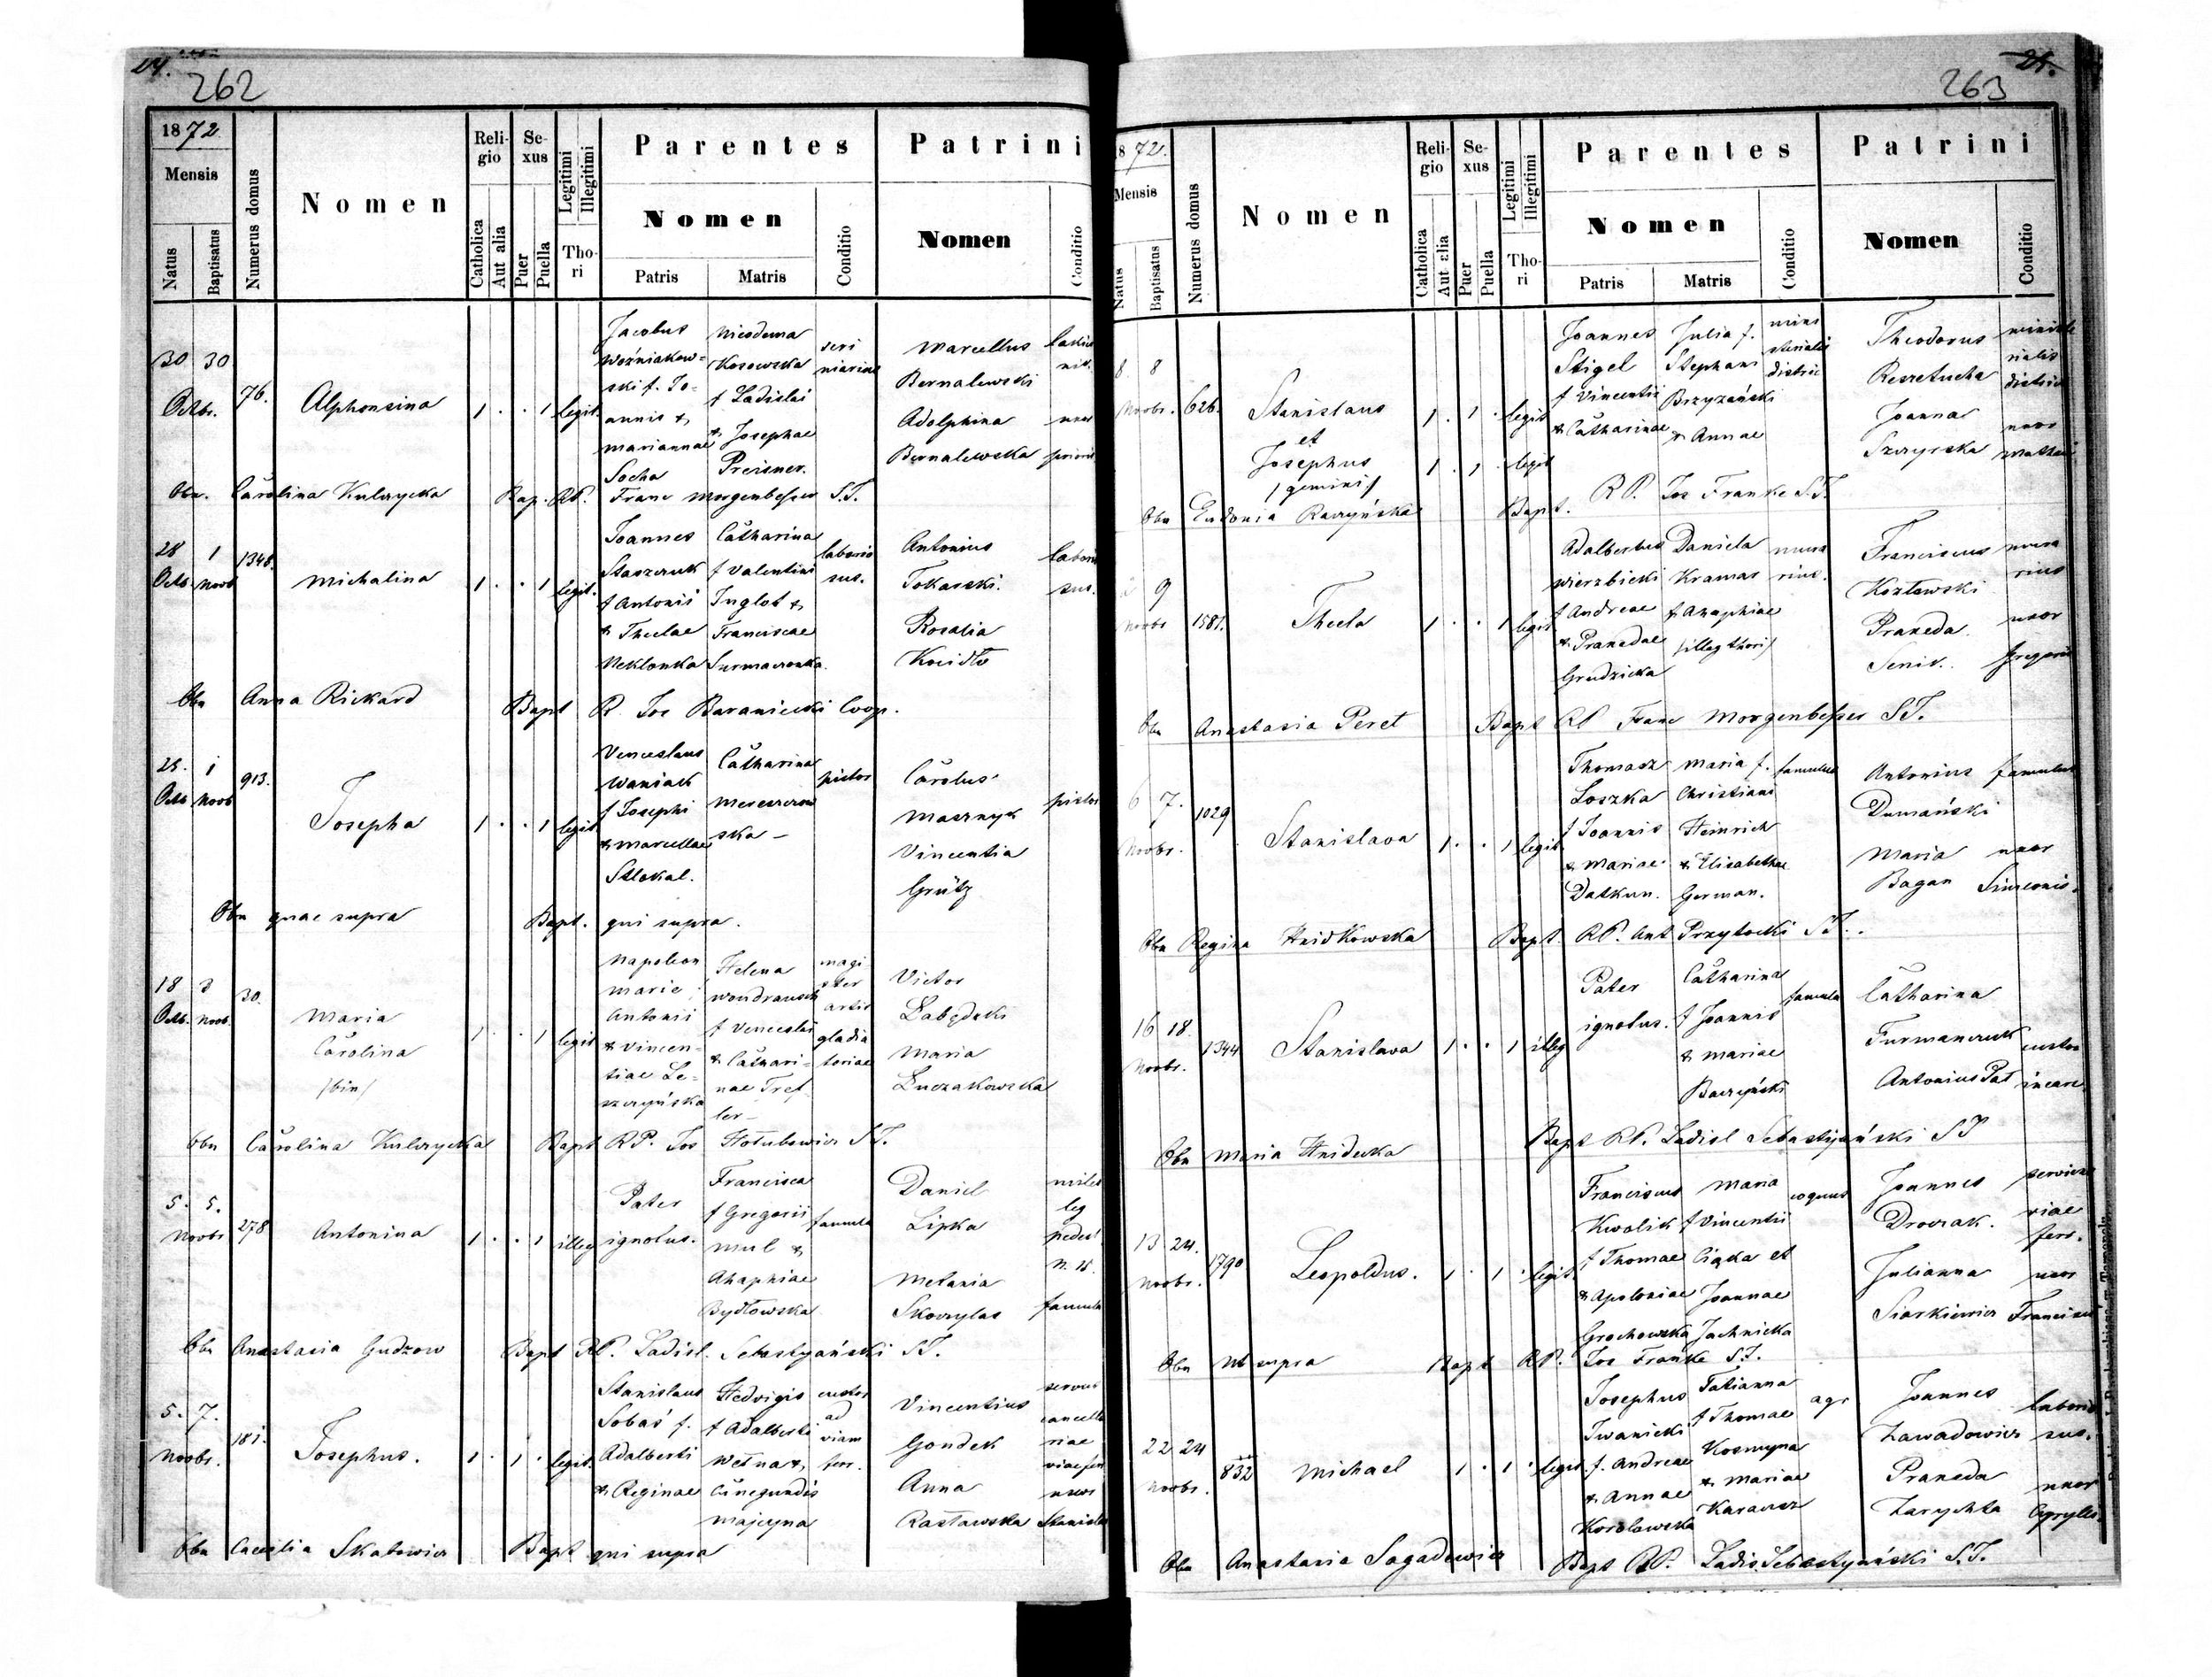 24.
262
1872
Mensis
Natus
Baptisatus
Numerus domus
Nomen
Religio
Catholica
Aut alia
Sexus
Puer
Puella
Legitimi
Illegitimi
Thori
Parentes
Nomen
Patris
Matris
Conditio
Patrini
Nomen
Conditio
30 30
Octbr.
76.
Alphonsina
1 . . 1 legit.
Jacobus
Woźniakow=
ski f. Jo=
annis &
Mariannae
Socha
Nicodema
Kosowska
f Ladislai
& Josephae
Preisner.
Marcellus
Bernalewski
Adolphina
Bernalewska
Obs. Carolina Kulczycka Bap. RP. Franc Morgenbesser S.J.
28 1
Octb. Novb
1348.
Michalina
1 . . 1 legit.
Joannes
Staszczuk
f Antonii
& Theclae
Neklonka
Catharina
f Valentini
Inglot &
Franciscae
laborio
sus.
Antonius
Tokarski.
Rosalia
sus.
Obs Anna Rickard Bapt R. Jos Baraniecki Coop.
913.
Octb Novb
Josepha
1 . . 1 legit
Venceslaus
Waniack
f Josephi
& Marcellae
Catharina
ska –
pistor
Carolus
Vincentia
Grütz
pistor
Obs quae supra Bapt. qui supra.
18 3
Octb. Novb.
30.
Maria
Carolina
/bin/
1 . . 1 legit
Napoleon
Marie
Antonii
& Vincen=
tiae Le=
szczyńska
Helena
f Venceslai
& Cathari=
nae Tref
ler –
magi
ster
artis
gladia
toriae
Victor
Łabędzki
Maria
Łuczakowska
Obs Carolina Kulczycka Bapt RP. Jos Hołubowicz S.J.
5. 5.
Novbr
278
Antonina
1 . . 1 illeg
Pater
ignotus.
Francisca
f Gregorii
Mul &
Ahaphiae
Bydłowska
famula
Daniel
Lipka
Melania
Skoczylas
miles
leg
pedest.
famula
Obs Anastasia Gudzow Bapt RP. Ladisl. Sebastyański S.J.
5. 7.
Novbr.
181.
Josephus.
1 . 1 . legit.
Stanislaus
Sobaś f.
Adalberti
& Reginae
Hedvigis
f Adalberti
Wełna &
Cunegundis
Majcyna
custos
ad
viam
ferr.
Vincentius
Gondek
Anna
Rasławska
servus
cancella
riae
uxor
Stanislai
Obs Caecilia Skałowicz Bapt qui supra
25.
263
1872.
Mensis
Natus
Baptisatus
Numerus domus
Nomen
Religio
Catholica
Aut alia
Sexus
Puer
Puella
Legitimi
Illegitimi
Thori
Parentes
Nomen
Patris
Matris
Conditio
Patrini
Nomen
Conditio
8 8
Novbr.
626.
Stanislaus
et
Josephus
/gemini/
1 . 1 . legit
1 . 1 . legit
Joannes
Stigel
f Vincentii
& Catharinae
Julia f.
Stephani
Brzyzański
& Annae
mini
sterialis
district
Theodorus
Joanna
Szczyrska
uxor
RP. Jos Franke S.J.
Obs Eudonia Raczyńska Bapt.
9
Novbr
1581.
Thecla
1 . . 1 legit
Adalbertus
Wierzbicki
f Andreae
& Praxedae
Grudzicka
Daniela
Kramar
f Ahaphiae
/illeg thori/
mura
rius.
Franciscus
Kozłowski
Praxeda
Senik.
mura
rius
uxor
Gregorii
Obs Anastasia Peret Bapt RP Franc Morgenbesser S.J.
6 7.
Novbr.
1029
Stanislava
1 . . 1 legit
Thomasz
Loszka
f Joannis
& Mariae
Datkun.
Maria f.
Christiani
Heinrich
& Elisabethae
German.
famulus
Antonius
Dumański
Maria
Bagan
famulus
uxor
Simeonis.
Obs Regina Hnidkowska Bapt. RP. Ant Przytocki S.J.
16 18.
Novbr.
1344
Stanislava
1 . . 1 illeg
Pater
ignotus.
Catharina
f Joannis
& Mariae
Baczyński
famula
Catharina
Furmanczuk
Antonius Pat
custos
incarc
Obs Maria Hnidecka Bapt RP. Ladisl Sebastyański S J
13 24.
Novbr.
1790
Leopoldus.
1 . 1 . legit.
Franciscus
Kwolik
f Thomae
& Apoloniae
Grochowska
Maria
f Vincentii
Ciąka et
Joannae
Jachnicka
coquus
Joannes
Drozak.
Julianna
Siarkiewicz
viae
ferr.
uxor
Francisci
Obs ut supra Bapt RP. Jos Franke S.J.
22 24
Novbr.
832
Michael
1 . 1 . legit.
Josephus
Iwanicki
f. Andreae
& Annae
Korolowska
Tatianna
f Thomae
Kosmyna
& Mariae
Karavcz
agr
Joannes
Zawadowicz
Praxeda
Zarychta
laborio
sus.
uxor
Cyrylli
Obs Anastasia Sagadowicz Bapt RP. Ladis. Sebastyański S.J.